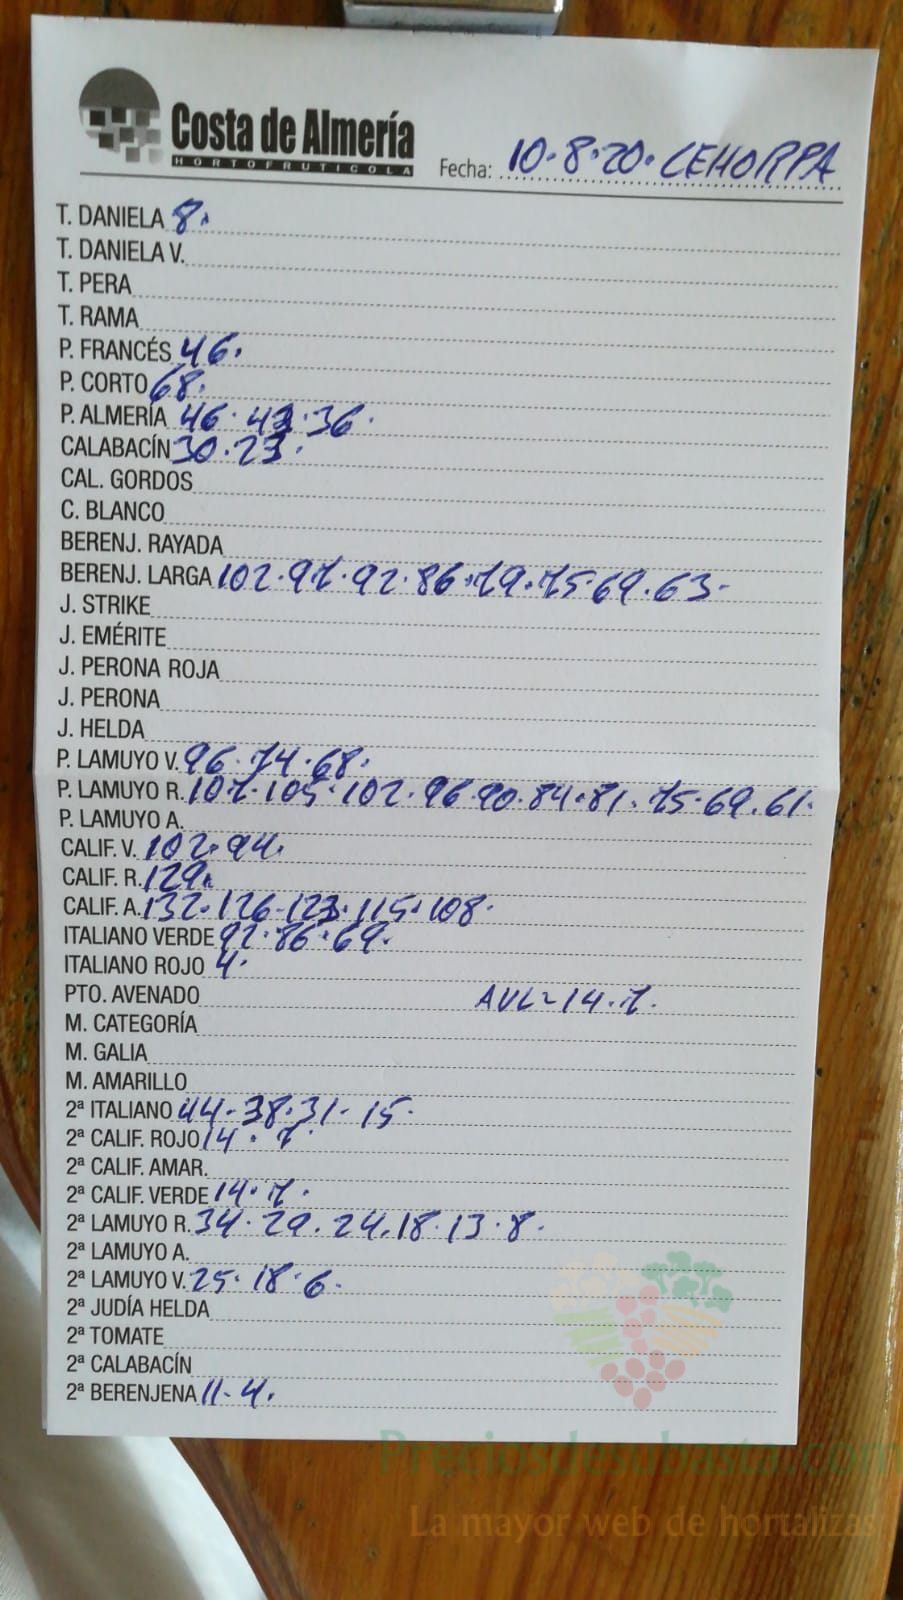 Costa de Almería
HORTOFRUTICOLA
Fecha: 10.8.20. CEHORPA
T. DANIELA 8.
T. DANIELA V.
T. PERA
T. RAMA
P. FRANCÉS 46.
P. CORTO 68.
P. ALMERÍA 46. 43. 36.
CALABACÍN 30. 23.
CAL. GORDOS
C. BLANCO
BERENJ. RAYADA
BERENJ. LARGA 102. 97. 92. 86. 79. 75. 69. 63.
J. STRIKE
J. EMÉRITE
J. PERONA ROJA
J. PERONA
J. HELDA
P. LAMUYO V. 96. 74. 68.
P. LAMUYO R. 107. 105. 102. 96. 90. 84. 81. 75. 69. 61.
P. LAMUYO A.
CALIF. V. 102. 94.
CALIF. R. 129.
CALIF. A. 132. 126. 123. 115. 108.
ITALIANO VERDE 92. 86. 69.
ITALIANO ROJO 4.
PTO. AVENADO AVL~14. 7.
M. CATEGORÍA
M. GALIA
M. AMARILLO
2ª ITALIANO 44. 38. 31. 15.
2ª CALIF. ROJO 14. 7.
2ª CALIF. AMAR.
2ª CALIF. VERDE 14. 7.
2ª LAMUYO R. 34. 29. 24. 18. 13. 8.
2ª LAMUYO A.
2ª LAMUYO V. 25. 18. 6.
2ª JUDÍA HELDA
2ª TOMATE
2ª CALABACÍN
2ª BERENJENA 11. 4.
Preciosdesubasta.com
La mayor web de hortalizas